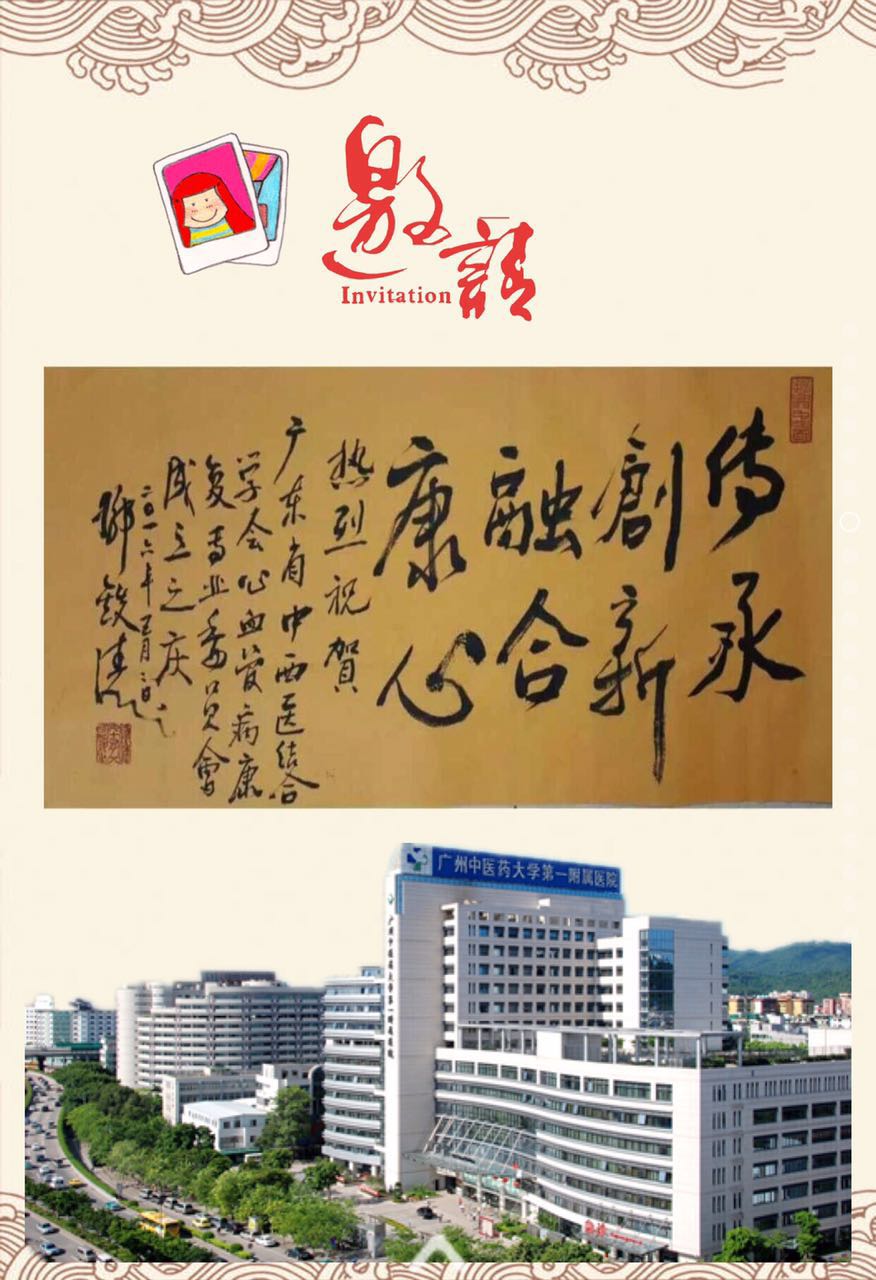 邀請
Invitation
传承
創新
融合
康心
热烈祝賀
广东省中西医结合
学会心血管病康
复专业委员會
成立之庆
二〇一六年
广州中医药大学第一附属医院
广州中医药大学第一附属医院